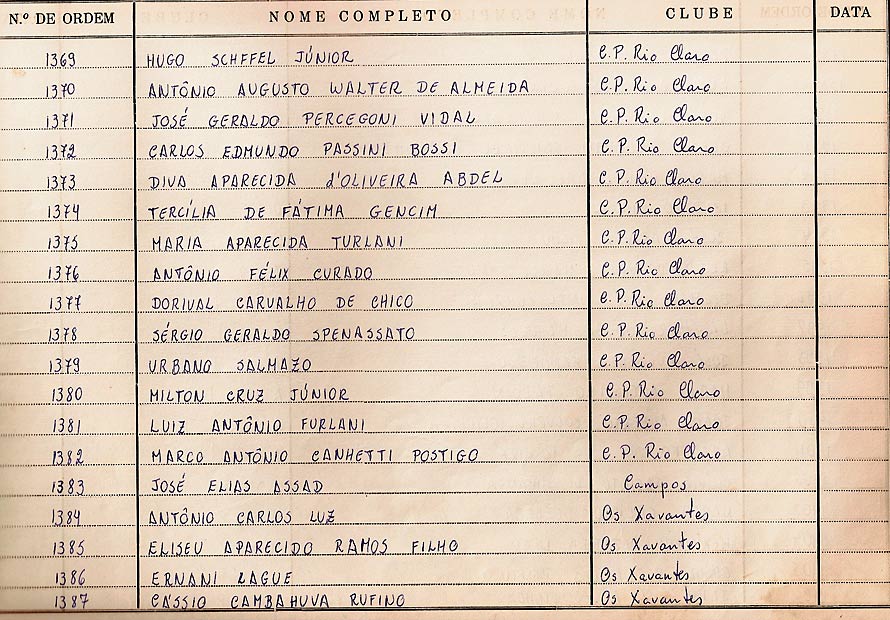 N.º DE ORDEM NOME COMPLETO CLUBE DATA
1369 HUGO SCHFFEL JÚNIOR C.P. Rio Claro
1370 ANTÔNIO AUGUSTO WALTER DE ALMEIDA C.P. Rio Claro
1371 JOSÉ GERALDO PERCEGONI VIDAL C.P. Rio Claro
1372 CARLOS EDMUNDO PASSINI BOSSI C.P. Rio Claro
1373 DIVA APARECIDA d'OLIVEIRA ABDEL C.P. Rio Claro
1374 TERCÍLIA DE FÁTIMA GENCIM C.P. Rio Claro
1375 MARIA APARECIDA TURLANI C.P. Rio Claro
1376 ANTÔNIO FÉLIX CURADO C.P. Rio Claro
1377 DORIVAL CARVALHO DE CHICO C.P. Rio Claro
1378 SÉRGIO GERALDO SPENASSATO C.P. Rio Claro
1379 URBANO SALMAZO C.P. Rio Claro
1380 MILTON CRUZ JÚNIOR C.P. Rio Claro
1381 LUIZ ANTÔNIO FURLANI C.P. Rio Claro
1382 MARCO ANTÔNIO CANHETTI POSTIGO C.P. Rio Claro
1383 JOSÉ ELIAS ASSAD Campos
1384 ANTÔNIO CARLOS LUZ Os Xavantes
1385 ELISEU APARECIDO RAMOS FILHO Os Xavantes
1386 ERNANI LAGUE Os Xavantes
1387 CÁSSIO CAMBAHUVA RUFINO Os Xavantes